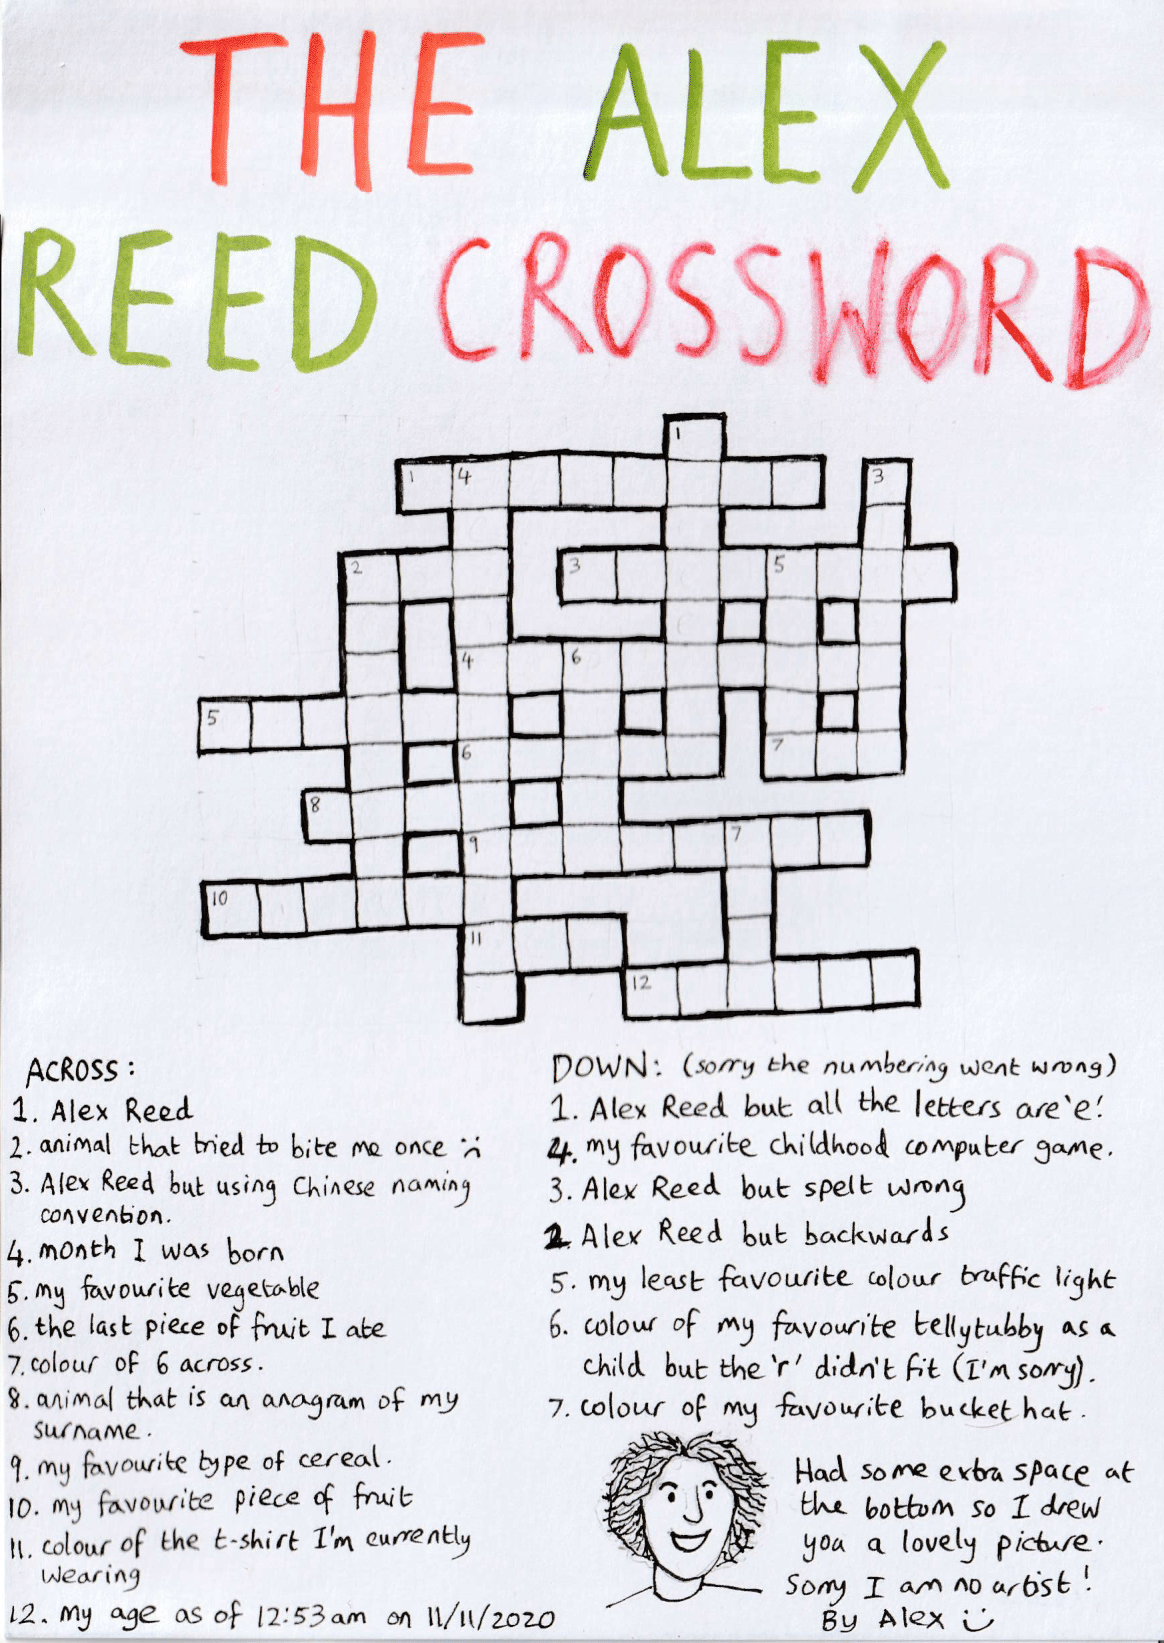 THE ALEX
REED CROSSWORD
1
1 4 3
2 3 5
4 6
5
6 7
8
9 7
10
11
12
ACROSS:
1. Alex Reed
2. animal that tried to bite me once :(
3. Alex Reed but using Chinese naming
convention.
4. month I was born
5. my favourite vegetable
6. the last piece of fruit I ate
7. colour of 6 across.
8. animal that is an anagram of my
surname.
9. my favourite type of cereal.
10. my favourite piece of fruit
11. colour of the t-shirt I'm currently
wearing
12. my age as of 12:53am on 11/11/2020
DOWN: (sorry the numbering went wrong)
1. Alex Reed but all the letters are 'e'!
4. my favourite childhood computer game.
3. Alex Reed but spelt wrong
2. Alex Reed but backwards
5. my least favourite colour traffic light
6. colour of my favourite tellytubby as a
child but the 'r' didn't fit (I'm sorry).
7. colour of my favourite bucket hat.
Had some extra space at
the bottom so I drew
you a lovely picture.
Sorry I am no artist!
By Alex :)